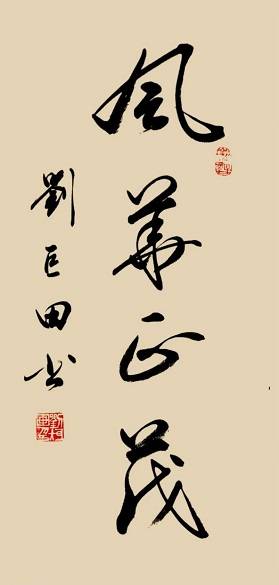 風華正茂
劉巨田书